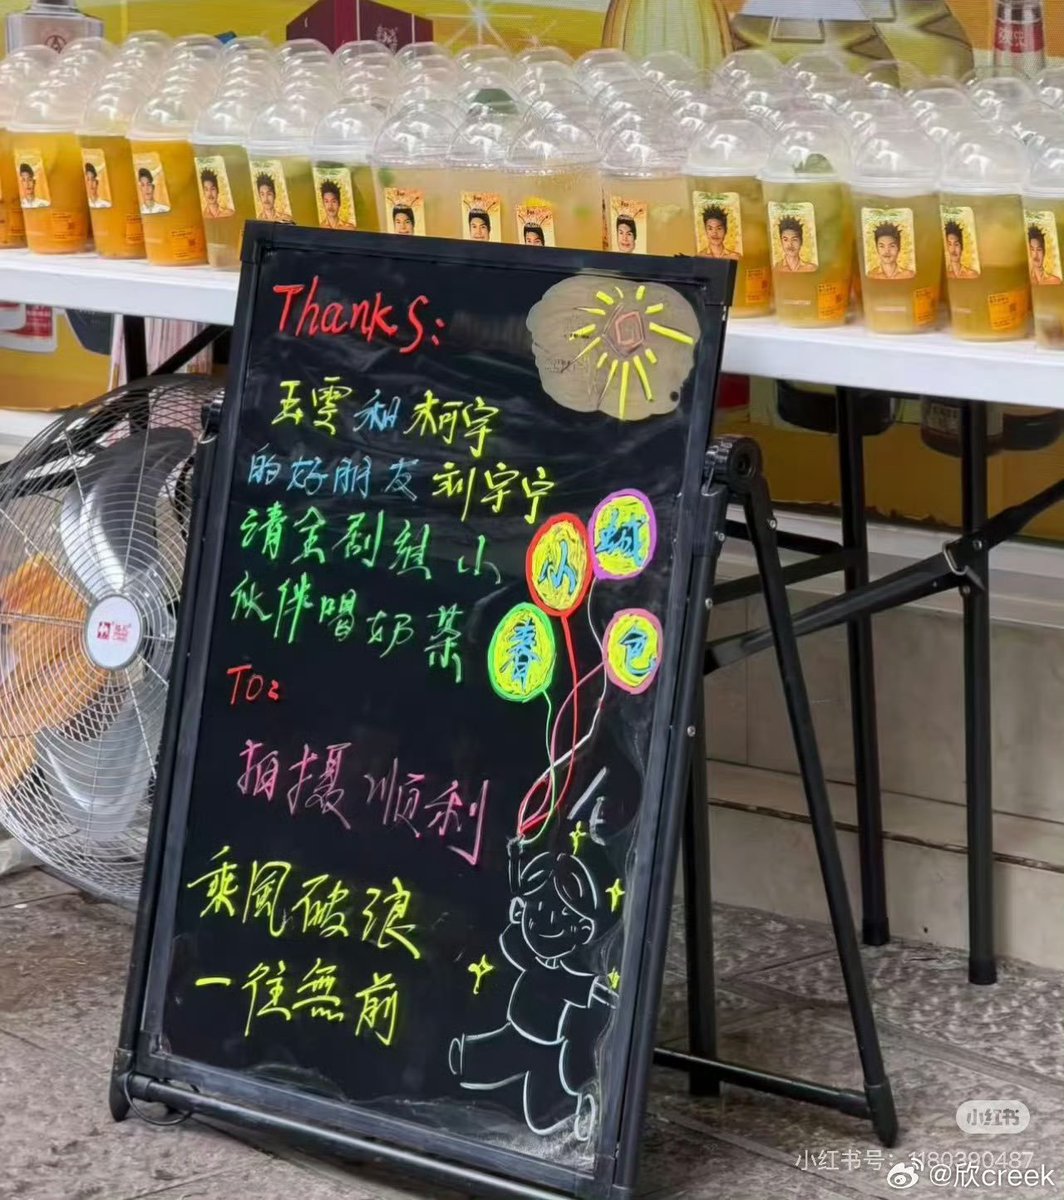 Thanks:
玉雲和柯宇
的好朋友刘宇宁
请全剧组小
伙伴喝奶茶
小城
春包
To:
拍摄顺利
乘風破浪
一往無前
小红书
小红书号：1180390487
@欣creek